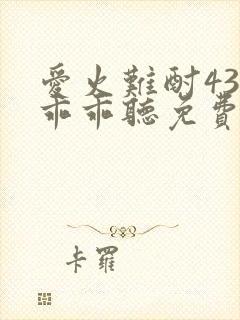 愛火難酎43
乖乖聽免費
卡羅